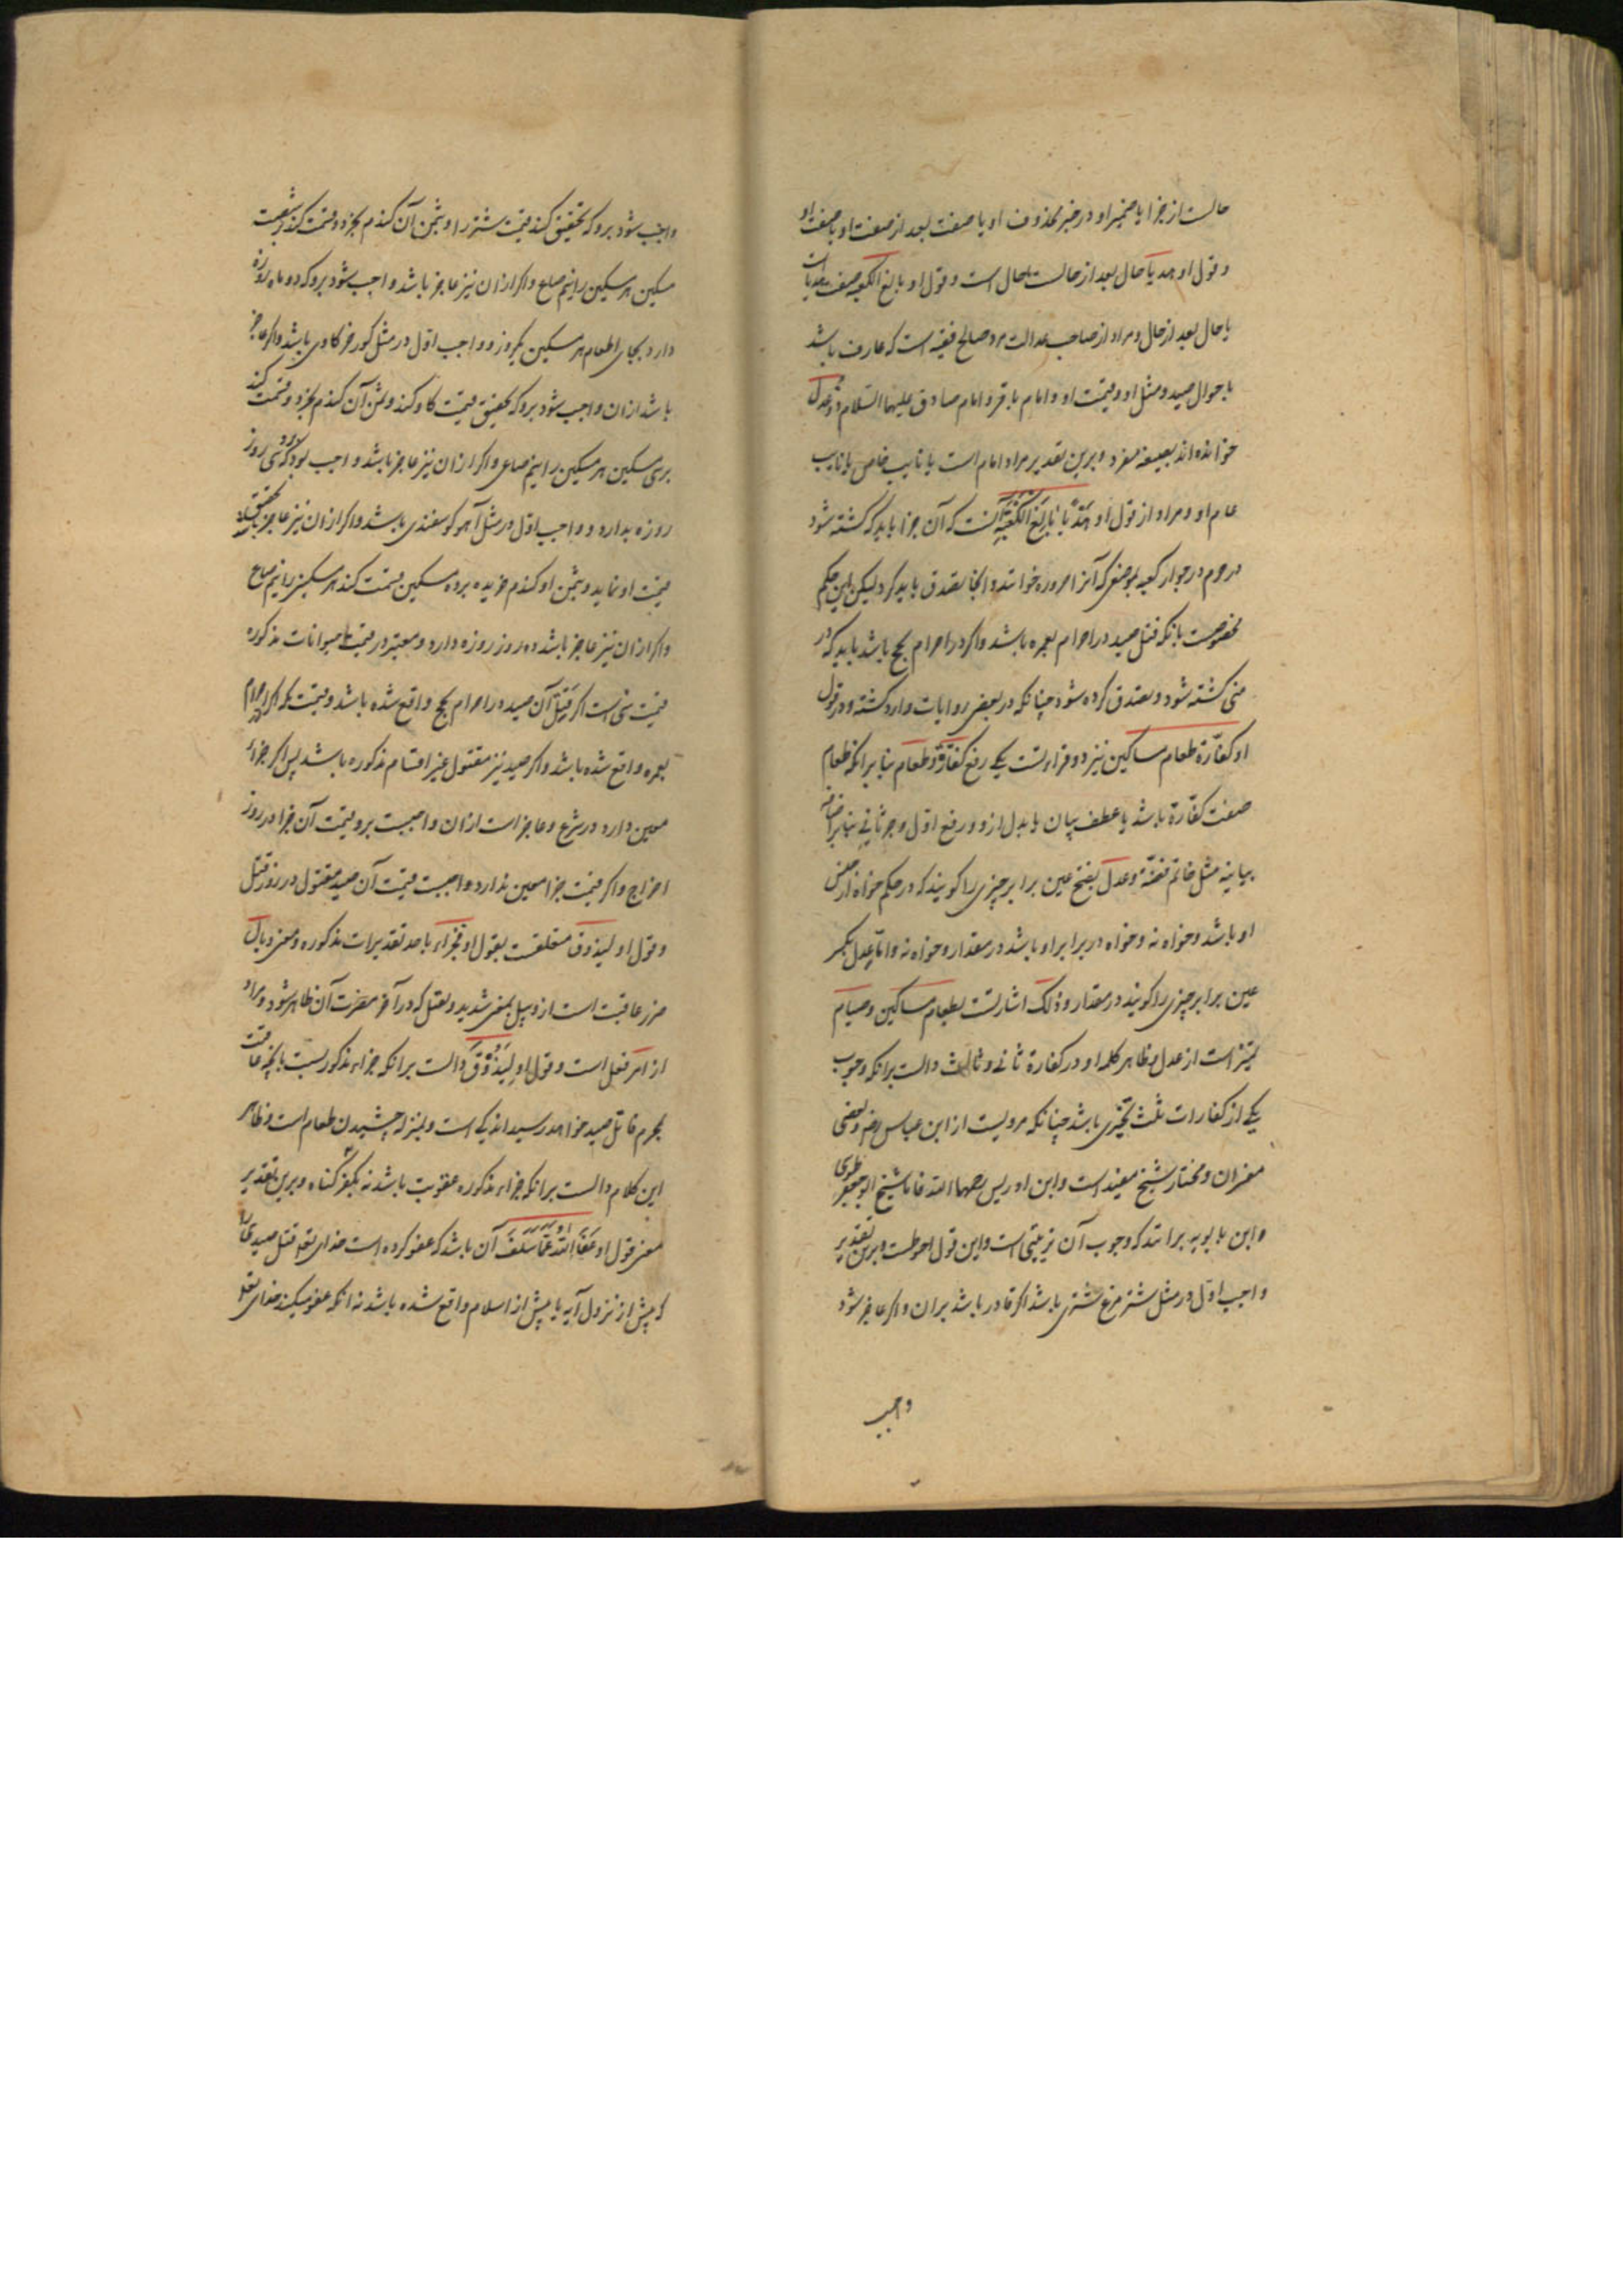 حالست از جزا یا ضمیر او در خبر محذوف او یا صفت بعد از صفت او یا صفت او
و قول او هدیا حال بعد از حالست یا حال است و قول او بالغ الکعبه صفت هدیا است
یا حال بعد از حال و مراد از صاحب عدالت مرد صالح فقیه است که عارف باشد
باحوال صید و مثل او و قیمت او و امام باقر و امام صادق علیهما السلام ذو عدل
خوانده اند بصیغه مفرد و برین تقدیر مراد امام است یا نایب خاص یا نایب
عام او و مراد از قول او هَدْیًا بَالِغَ الْکَعْبَةِ آنست که آن جزا باید که کشته شود
در حرم در جوار کعبه بموضعی که آنرا حروره خوانند و آنجا تصدق باید کرد لیکن این حکم
مخصوصست بانکه قتل صید در احرام بعمره باشد و اکر در احرام بحج باشد باید که در
منی کشته شود و تصدق کرده شود چنانکه در بعضی روایات وارد کشته و در قول
او کفّارة طعام مساکین نیز دو قراءتست یکی رفع کفّارةٌ و طعام بنا برانکه طعام
صفت کفّارة باشد یا عطف بیان یا بدل ازو و رفع اوّل و جرّ ثانی بنا بر اضافه
بیانیه مثل خاتم فضّة و عدل بفتح عین برابر چیزی را کویند که در حکم خواه از جنس
او باشد و خواه نه و خواه در برابر او باشد در مقدار و خواه نه و امّا عِدل بکسر
عین برابر چیزی را کویند در مقدار و ذلک اشارتست بطعام مساکین و صیام
تمیز است از عدل و ظاهر کلمه او در کفارة ثانی و ثالث دالست برانکه وجوب
یکی از کفارات ثلث تخییری باشد چنانکه مرویست از ابن عباس رض و بعضی
مفسران و مختار شیخ مفید است و ابن ادریس رحمهما الله فاما شیخ ابو جعفر طوسی
و ابن بابویه برانند که وجوب آن ترتیبی است و این قول احوطست و برین تقدیر
واجب اوّل در مثل شتر مرغ شتری باشد اکر قادر باشد بران و اکر عاجز شود
واجب
واجب شود برو که تحقیق کند قیمت شتر را و بثمن آن کندم بخرد و قسمت کند بر شصت
مسکین هر مسکین را نیم صاع و اکر ازان نیز عاجز باشد واجب شود برو که دو ماه روزه
دارد بجای اطعام هر مسکین یکروز و واجب اوّل در مثل کور خر کاوی باشد و اکر عاجز
باشد ازان واجب شود برو که تحقیق قیمت کاو کند و بثمن آن کندم بخرد و قسمت کند
بر سی مسکین هر مسکین را نیم صاع و اکر ازان نیز عاجز باشد واجب بود برو که سی روز
روزه بدارد و واجب اوّل در مثل آهو کوسفندی باشد و اکر ازان نیز عاجز باشد تحقیق
قیمت او نماید و بثمن او کندم خریده بر ده مسکین قسمت کند هر مسکین را نیم صاع
و اکر ازان نیز عاجز باشد ده روز روزه دارد و معتبر در قیمت حیوانات مذکوره
قیمت منی است اکر قتل آن صید در احرام بحج واقع شده باشد و قیمت مکه اکر در احرام
بعمره واقع شده باشد و اکر صید نیز مقتول غیر اقسام مذکوره باشد پس اکر جزاء
معین دارد در شرع و عاجز است ازان واجبست برو قیمت آن جزا در روز
اخراج و اکر قیمت جزا معین ندارد واجبست قیمت آن صید مقتول در روز قتل
و قول او لیذوق متعلقست بقول او فجزاء باحد تقدیرات مذکوره و معنی وبال
ضرر عاقبت است از وبیل بمعنی شدید و ثقیل که در آخر مضرت آن ظاهر شود و مراد
از امر فعل است و قول او لِیَذُوْقَ دالست برانکه جزاء مذکور نسبت بانچه عاقبت
بجرم قاتل صید خواهد رسید اندکی است و بمنزله چشیدن طعام است و ظاهر
این کلام دالست برانکه جزاء مذکوره عقوبت باشد نه مکفر کناه و برین تقدیر
معنی قول او عَفَا اللّه عَمَّا سَلَفَ آن باشد که عفو کرده است خدای تعالی قتل صیدی را
که پیش از نزول آیه یا پیش از اسلام واقع شده باشد نه انکه عفو میکند خدای تعالی